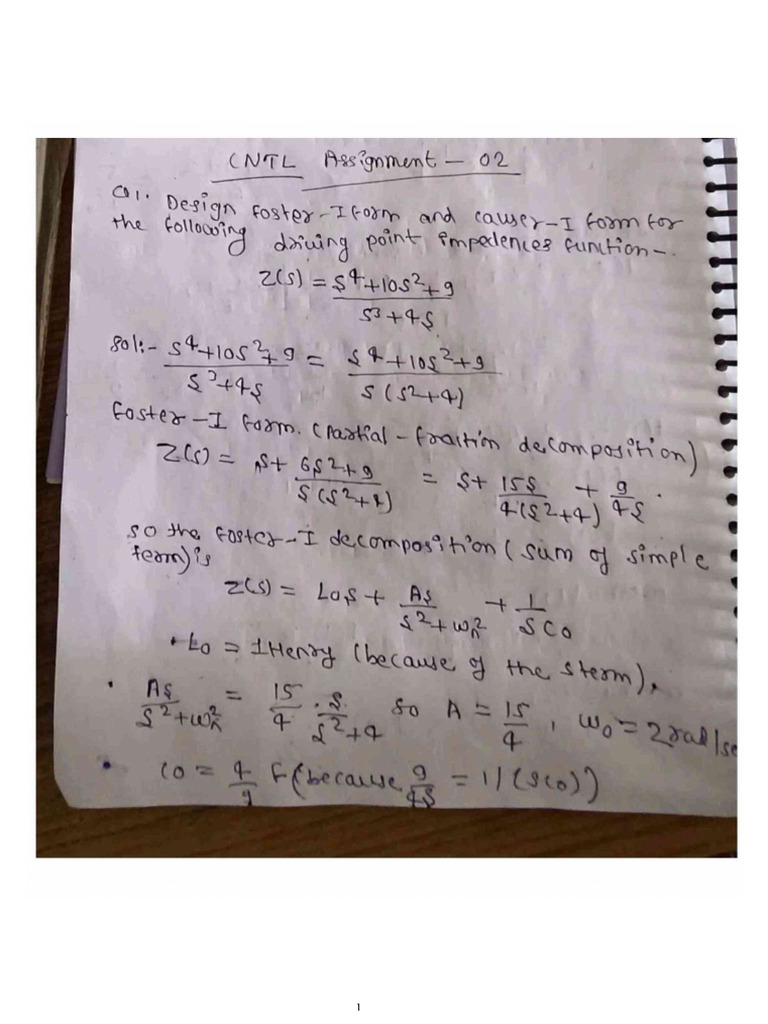 CNTL Assignment – 02
Q1. Design Foster-I form and causer-I form for
the following driving point impedences function-.
Z(s) = (s^4+10s^2+9)/(s^3+4s)
Sol:- (s^4+10s^2+9)/(s^3+4s) = (s^4+10s^2+9)/(s(s^2+4))
Foster-I form. (Partial-fraction decomposition)
Z(s) = s+ (6s^2+9)/(s(s^2+4)) = s+ 15s/(4(s^2+4)) + 9/(4s) .
so the Foster-I decomposition (sum of simple
term) is
Z(s) = L0s + As/(s^2+ωn^2) + 1/(sC0)
• L0 = 1Henry (because of the s term).
• As/(s^2+ωn^2) = 15/4 . s/(s^2+4) so A = 15/4 , ω0 = 2rad/se
• C0 = 4/9 F (because 9/(4s) = 1/(sC0))
1